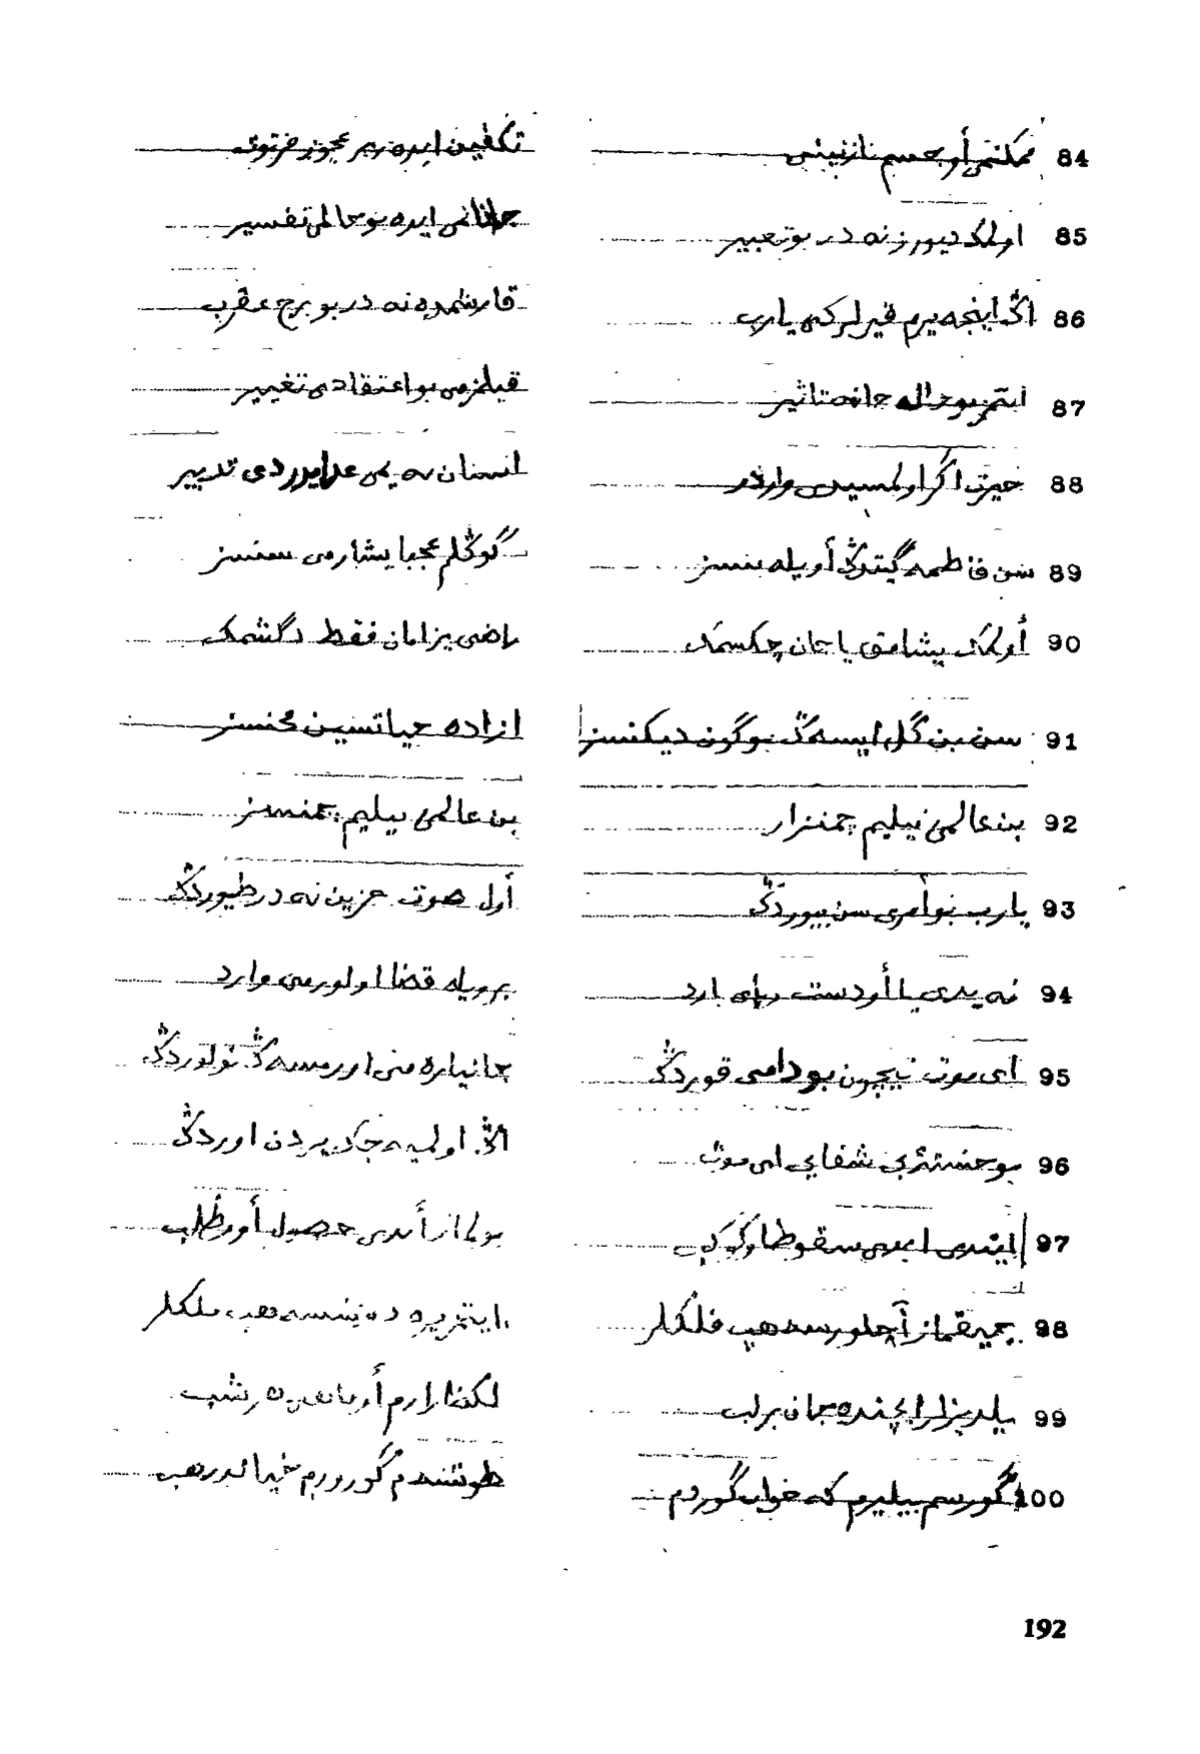 84 ممكنمی أو جسم نازنینی تكفین ایده بر عجوز فرتوته
85 اولمك دیورز نه در بو تعبیر جانانمی ایده بو حالمی تفسیر
86 اڭ اینجه یرم قیرلركه یارب قارشمده نه در بو برج عقرب
87 ایتمز بو حاله تاثیر قیلمزمی بو اعتقادمی تغییر
88 حیرت اگر اولمسیدی واردر انسان نه یمی ایدردی تدبیر
89 سن فاطمه گیتدڭ أویله بنسز گوڭلم عجبا یشارمی سنسز
90 أولمك یشامق یا جان چكسمك راضی یز امان فقط دگشمك
91 سن بن گل ایسه ڭ بوگون دیكنسز ازاده حیاتسین محنسز
92 بن عالمی نیلیم چمنزار بن عالمی نیلیم چمنسز
93 یارب بو امری سن بیوردڭ أول صوت حزین نه در طیوردڭ
94 نه یدی یا أو دست بارد بویله قضا اولورمی وارد
95 ای موت نیچون بو دامی قوردڭ جانیاره منی اورمسه ڭ نولوردڭ
96 بو خسته شفایی ای موت اڭ اولمیه جك یردن اوردڭ
97 ایتدی ابدی سقوط او كوكب بولما از أبدی حصول أو مطلب
98 چیقماز آچلورسه هپ فلكلر ایتمز ده ینسه هپ ملكلر
99 یلدیزلر ایچنده جان برلب لكن ارارم أو ماهی هر شب
100 گورسم بیلیرم كه خواب گوردم طوشندم گورورم خیالدر هپ
192